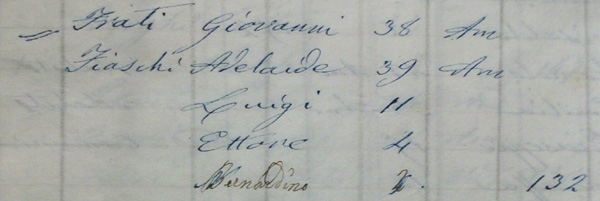 = Frati Giovanni 38 Am
Fiaschi Adelaide 39 Am
Luigi 11
Ettore 4
Bernardino . 132